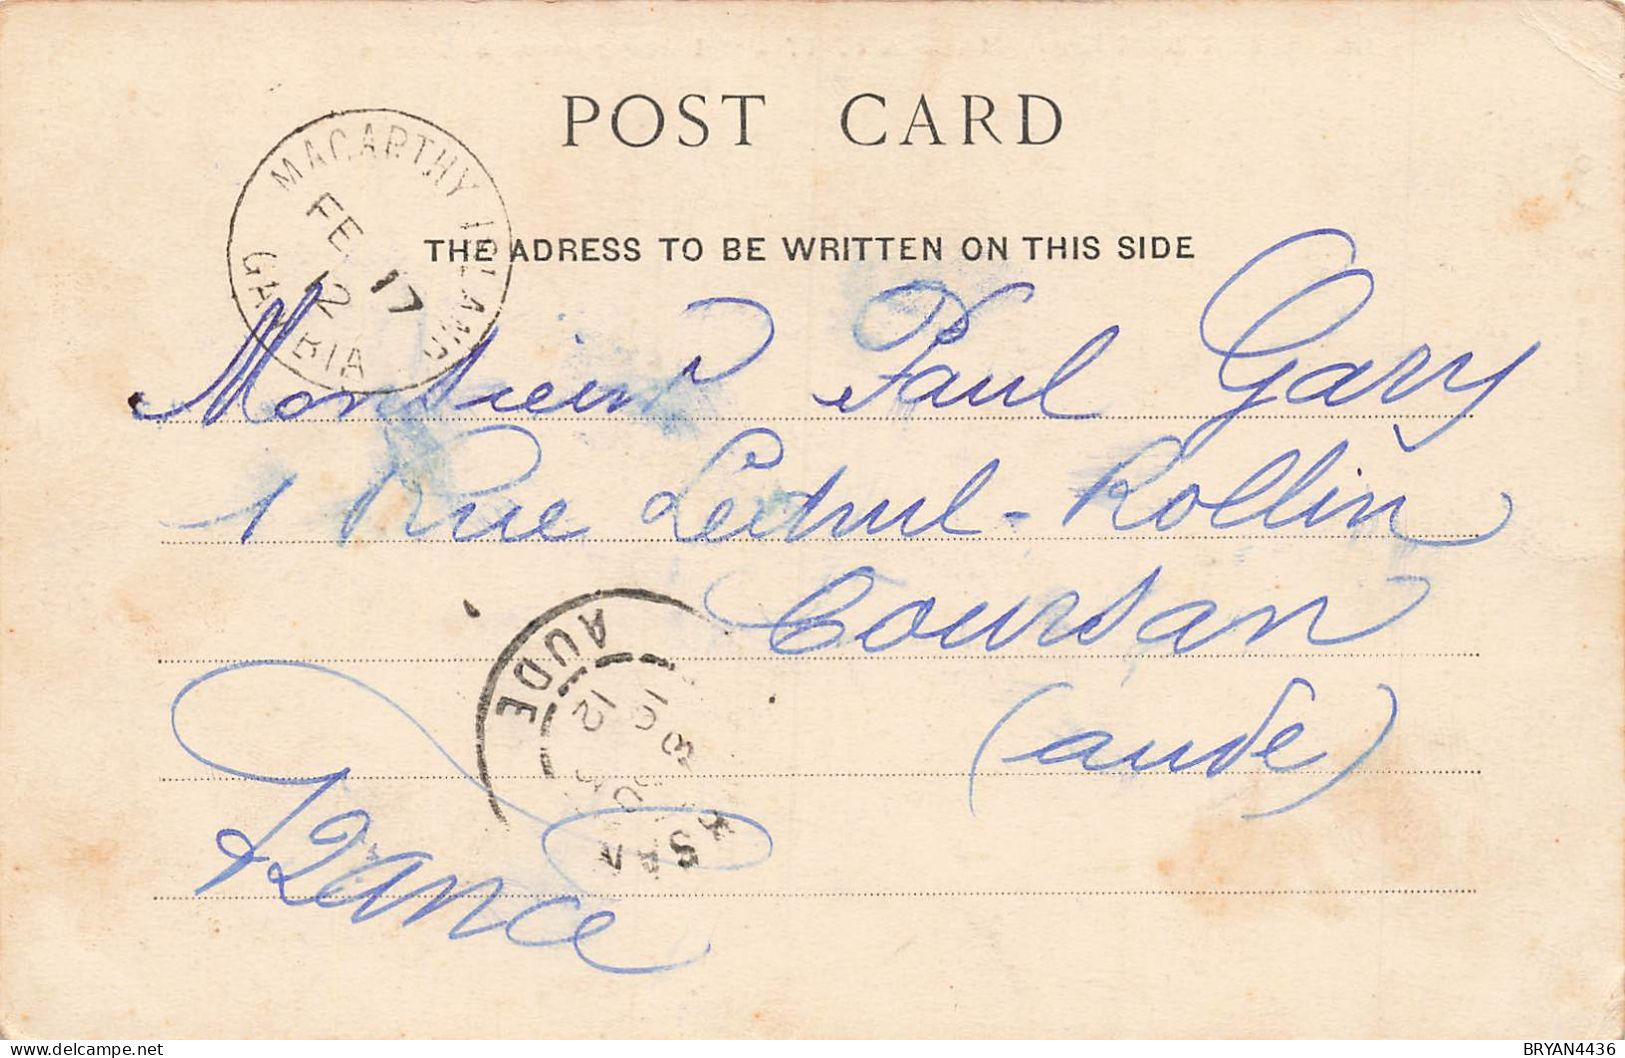 POST CARD
MACARTHY ISLAND
FE 17
12
GAMBIA
THE ADRESS TO BE WRITTEN ON THIS SIDE
Monsieur Paul Gary
1 Rue Ledrul-Rollin
Coursan
(aude)
France
AUDE
BRYAN4436
delcampe.net